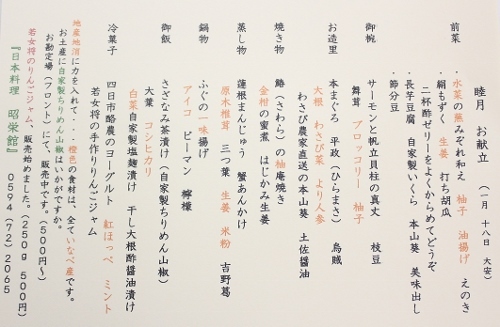 睦月 お献立 (一月 十八日 大安)
前菜 ・水菜の蕪みぞれ和え 柚子 油揚げ えのき
・絹もずく 生姜 打ち胡瓜
二杯酢ゼリーをよくからめてどうぞ
・長芋豆腐 自家製いくら 本山葵 美味出し
・節分豆
御椀 サーモンと帆立貝柱の真丈 枝豆
舞茸 ブロッコリー 柚子
お造里 本まぐろ 平政(ひらまさ) 烏賊
大根 わさび菜 より人参
わさび農家直送の本山葵 土佐醤油
焼き物 鰆(さわら)の柚庵焼き
金柑の蜜煮 はじかみ生姜
蒸し物 蓮根まんじゅう 蟹あんかけ
原木椎茸 三つ葉 生姜 米粉 吉野葛
鍋物 ふぐの一味揚げ
アイコ ピーマン 檸檬
御飯 さざなみ茶漬け(自家製ちりめん山椒)
大葉 コシヒカリ
白菜自家製塩麹漬け 干し大根酢醤油漬け
冷菓子 四日市酪農のヨーグルト 紅ほっぺ ミント
若女将の手作りりんごジャム
地産地消に力を入れて・・・橙色の食材は、全ていなべ産です。
お土産に自家製ちりめん山椒はいかがですか。
お勘定場(フロント)にて、販売中です。(500円~)
若女将のりんごジャム、販売始めました。(250g 500円)
『日本料理 昭栄館』 0594(72)2065